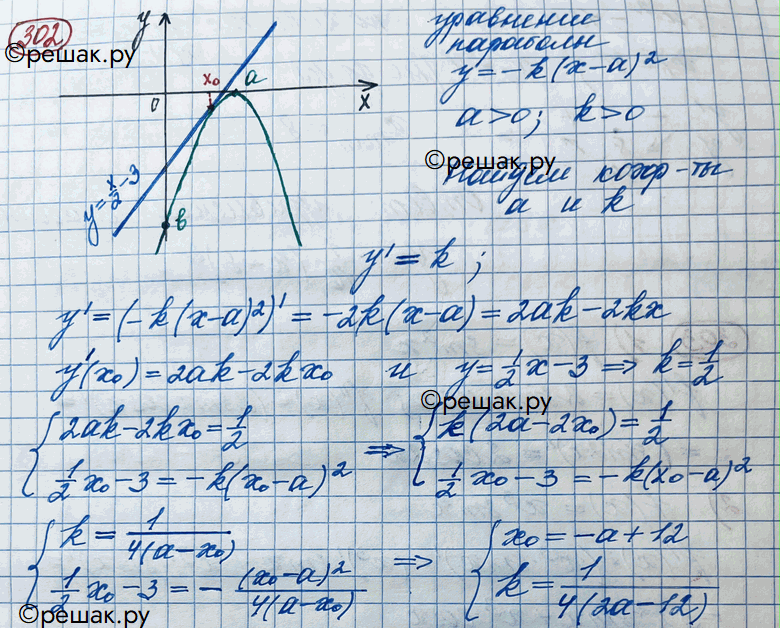 302
©решак.ру
y
x₀
a
0
x
y=x/2-3
b
уравнение
параболы
y=-k(x-a)²
a>0; k>0
©решак.ру
Найдем коэф-ты
a и k
y'=k;
y'=(-k(x-a)²)'=-2k(x-a)=2ak-2kx
y'(x₀)=2ak-2kx₀ и y=1/2x-3⇒k=1/2
©решак.ру
{2ak-2kx₀=1/2 ⇒ {k(2a-2x₀)=1/2
1/2x₀-3=-k(x₀-a)² 1/2x₀-3=-k(x₀-a)²
{k=1/4(a-x₀) ⇒ {x₀=-a+12
1/2x₀-3=-(x₀-a)²/4(a-x₀) k=1/4(2a-12)
©решак.ру